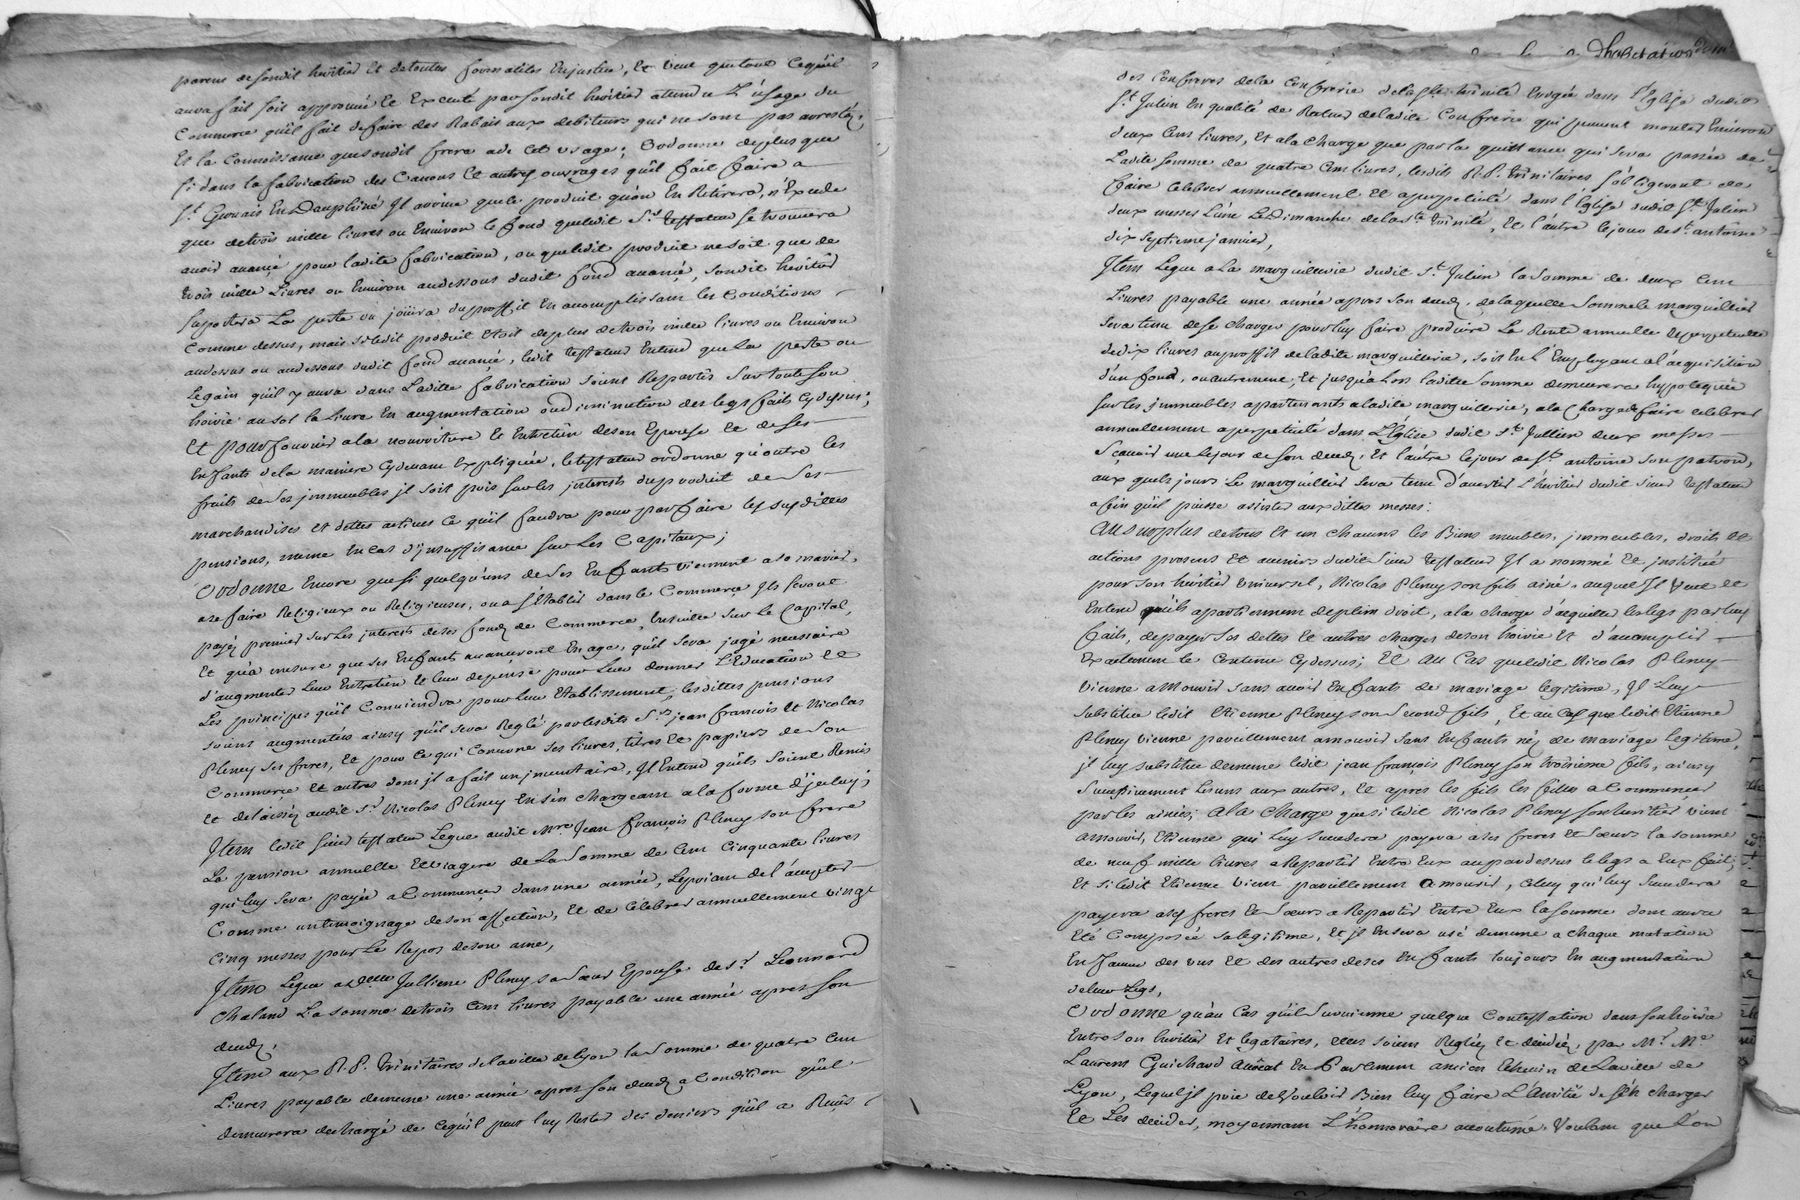 parens de sondit heritier et de toutes formalités en justice, et veut que tout ce qu'il
aura fait soit approuvé et executé par sondit heritier atendu l'usage du
Commerce qu'il fait de faire des Rabais aux debiteurs qui ne sont pas arrestés,
Et la connoissance que sondit frere a de cet usage; Ordonne de plus que
si dans la fabrication des Canons et autres ouvrages qu'il fait faire a
St. Gervais En Dauphiné Il arrive que le produit qu'on En Retirera, n'Excede
que de trois mille livres ou Environ le fond que ledit Sr. testateur se trouvera
avoir avancé pour ladite fabrication, ou que ledit produit ne soit que de
trois mille Livres ou Environ audessous dudit fond avancé, sondit heritier
suportera La perte ou jöuira du proffit En accomplissant les Conditions
Comme dessus, mais si ledit produit Etoit de plus de trois mille livres ou Environ
audessus ou audessous dudit fond avancé, ledit testateur Entend que La perte ou
Le gain qu'il y aura dans Ladite fabrication soient Repartis sur toute son
hoirie au sol la livre En augmentation ou diminution des legs faits cydessus;
Et pour fournir a la nourriture et Entretien de son Epouse et de ses
Enfants de la maniere cydevant Expliquée, le testateur ordonne qu'outre les
fruits de ses jmmeubles jl soit pris sur les jnterests du produit de ses
marchandises et dettes actives ce qu'il faudra pour parfaire les susdittes
pensions, meme En cas d'jnsuffisance sur Les Capitaux;
Ordonne Encore que si quelqu'uns de ses Enfants viennent a se marier,
a se faire Religieux ou Religieuses, ou a s'Etablir dans le Commerce Ils seront
payés premier sur Les jnterests de ses fonds de Commerce, Ensuitte sur le Capital,
Et qu'a mesure que ses Enfants avanceront En age, qu'il sera jugé necessaire
d'augmenter Leur Entretien et leur depense pour Leur donner L'Education et
Les principes qu'il Conviendra pour leur Etablissement, lesdittes pensions
soient augmentées ainsy qu'il sera Reglé par lesdits Srs. jean françois et Nicolas
Pleney ses freres, Et pour ce qui Concerne ses livres, titres et papiers de son
Commerce et autres dont jl a fait un jnventaire, Il Entend qu'ils soient Remis
et delaissés audit Sr. Nicolas Pleney En s'en chargeant a la forme d'jceluy;
Item ledit sieur testateur Legue audit Mre. Jean François Pleney son frere
La pension annuelle et viagere de La somme de Cent Cinquante livres
qui luy sera payée a Commencer dans une année, Le priant de l'accepter
Comme un temoignage de son affection, Et de Celebrer annuellement vingt
Cinq messes pour Le Repos de son ame,
Item Legue a Jullienne Pleney sa sœur Epouse de Sr. Leonnard
Chaland La somme de trois Cent livres payable une année apres son
decés.
Item aux R.P. Trinitaires de la ville de Lyon la somme de quatre Cent
Livres payable de meme une année apres son decés a Condition qu'il
demeurera dechargé de ce qu'il peut luy Rester des deniers qu'il a Reçûs
d'habitation
des Confreres de la Confrerie de la Ste. trinité Erigée dans l'Eglise dudit
St. Julien En qualité de Recteur de ladite Confrerie qui peuvent monter Environ
deux Cent livres, Et a la charge que par la quittance qui sera passée de
Ladite somme de quatre Cent livres, lesdits R.P. trinitaires s'obligeront de
faire Celebrer annuellement et a perpetuité dans l'Eglise dudit St. Julien
deux messes L'une Le Dimanche de la Ste. trinité, Et l'autre le jour de St. antoine
dix septieme janvier,
Item Legue a La marguillerie dudit St. Julien la somme de deux Cent
Livres payable une année apres son decés, de laquelle somme le marguillier
sera tenu de se charger pour luy faire produire La Rente annuelle et perpetuelle
de dix livres au proffit de ladite marguillerie, soit En L'Employant a l'acquisition
d'un fond, ou autrement, Et jusqu'alors ladite somme demeurera hypotequée
sur les jmmeubles apartenants a ladite marguillerie, a la Charge de faire celebrer
annuellement a perpetuité dans L'Eglise dudit St. Jullien deux messes
Sçavoir une le jour de son decés, Et l'autre le jour de St. antoine son patron,
aux quels jours Le marguillier sera tenu d'avertir L'heritier dudit sieur testateur
afin qu'il puisse assister auxdittes messes:
Au surplus de tous Et un chacuns les Biens meubles, jmmeubles, droits et
actions presens et avenirs dudit sieur testateur Il a nommé et jnstitué
pour son heritier universel, Nicolas Pleney son fils ainé, auquel Il veut et
Entend qu'ils apartiennent de plein droit, a la charge d'acquitter les legs par luy
faits, de payer ses dettes et autres charges de son hoirie et d'accomplir
exactement le contenu cydessus; Et Au Cas que ledit Nicolas Pleney
vienne a Mourir sans avoir Enfants de mariage legitime, Il Luy
substitue ledit Etienne Pleney son second fils, Et au Cas que ledit Etienne
Pleney vienne pareillement a mourir sans Enfants nés de mariage legitime,
jl luy substitue de meme ledit jean françois Pleney son troisieme fils, ainsy
successivement Les uns aux autres, Et apres les fils les filles a Commencer
par les ainées; A la Charge que si ledit Nicolas Pleney son heritier vient
a mourir, Etienne qui Luy succedera payera a ses freres Et sœurs la somme
de neuf mille livres a Repartir Entre Eux au par dessus le legs a Eux fait;
Et si ledit Etienne vient pareillement a mourir, Celuy qui luy succedera
payera a ses freres et sœurs a Repartir Entre Eux la somme dont aura
Eté Composée sa legitime, Et jl En sera usé de meme a chaque mutation
En faveur des uns et des autres de ses Enfants toujours En augmentation
de leur Legs,
Ordonne qu'au Cas qu'il survienne quelque Contestation dans son hoirie
Entre son heritier Et legataires, elles soient Reglées Et decidées, par Mr. Me.
Laurent Guichard Avocat En Parlement ancien Echevin de La ville de
Lyon, Lequel jl prie de Vouloir Bien luy faire L'Amitié de s'en charger
Et Les decider, moyennant L'honnoraire accoutumé. Voulant que L'on